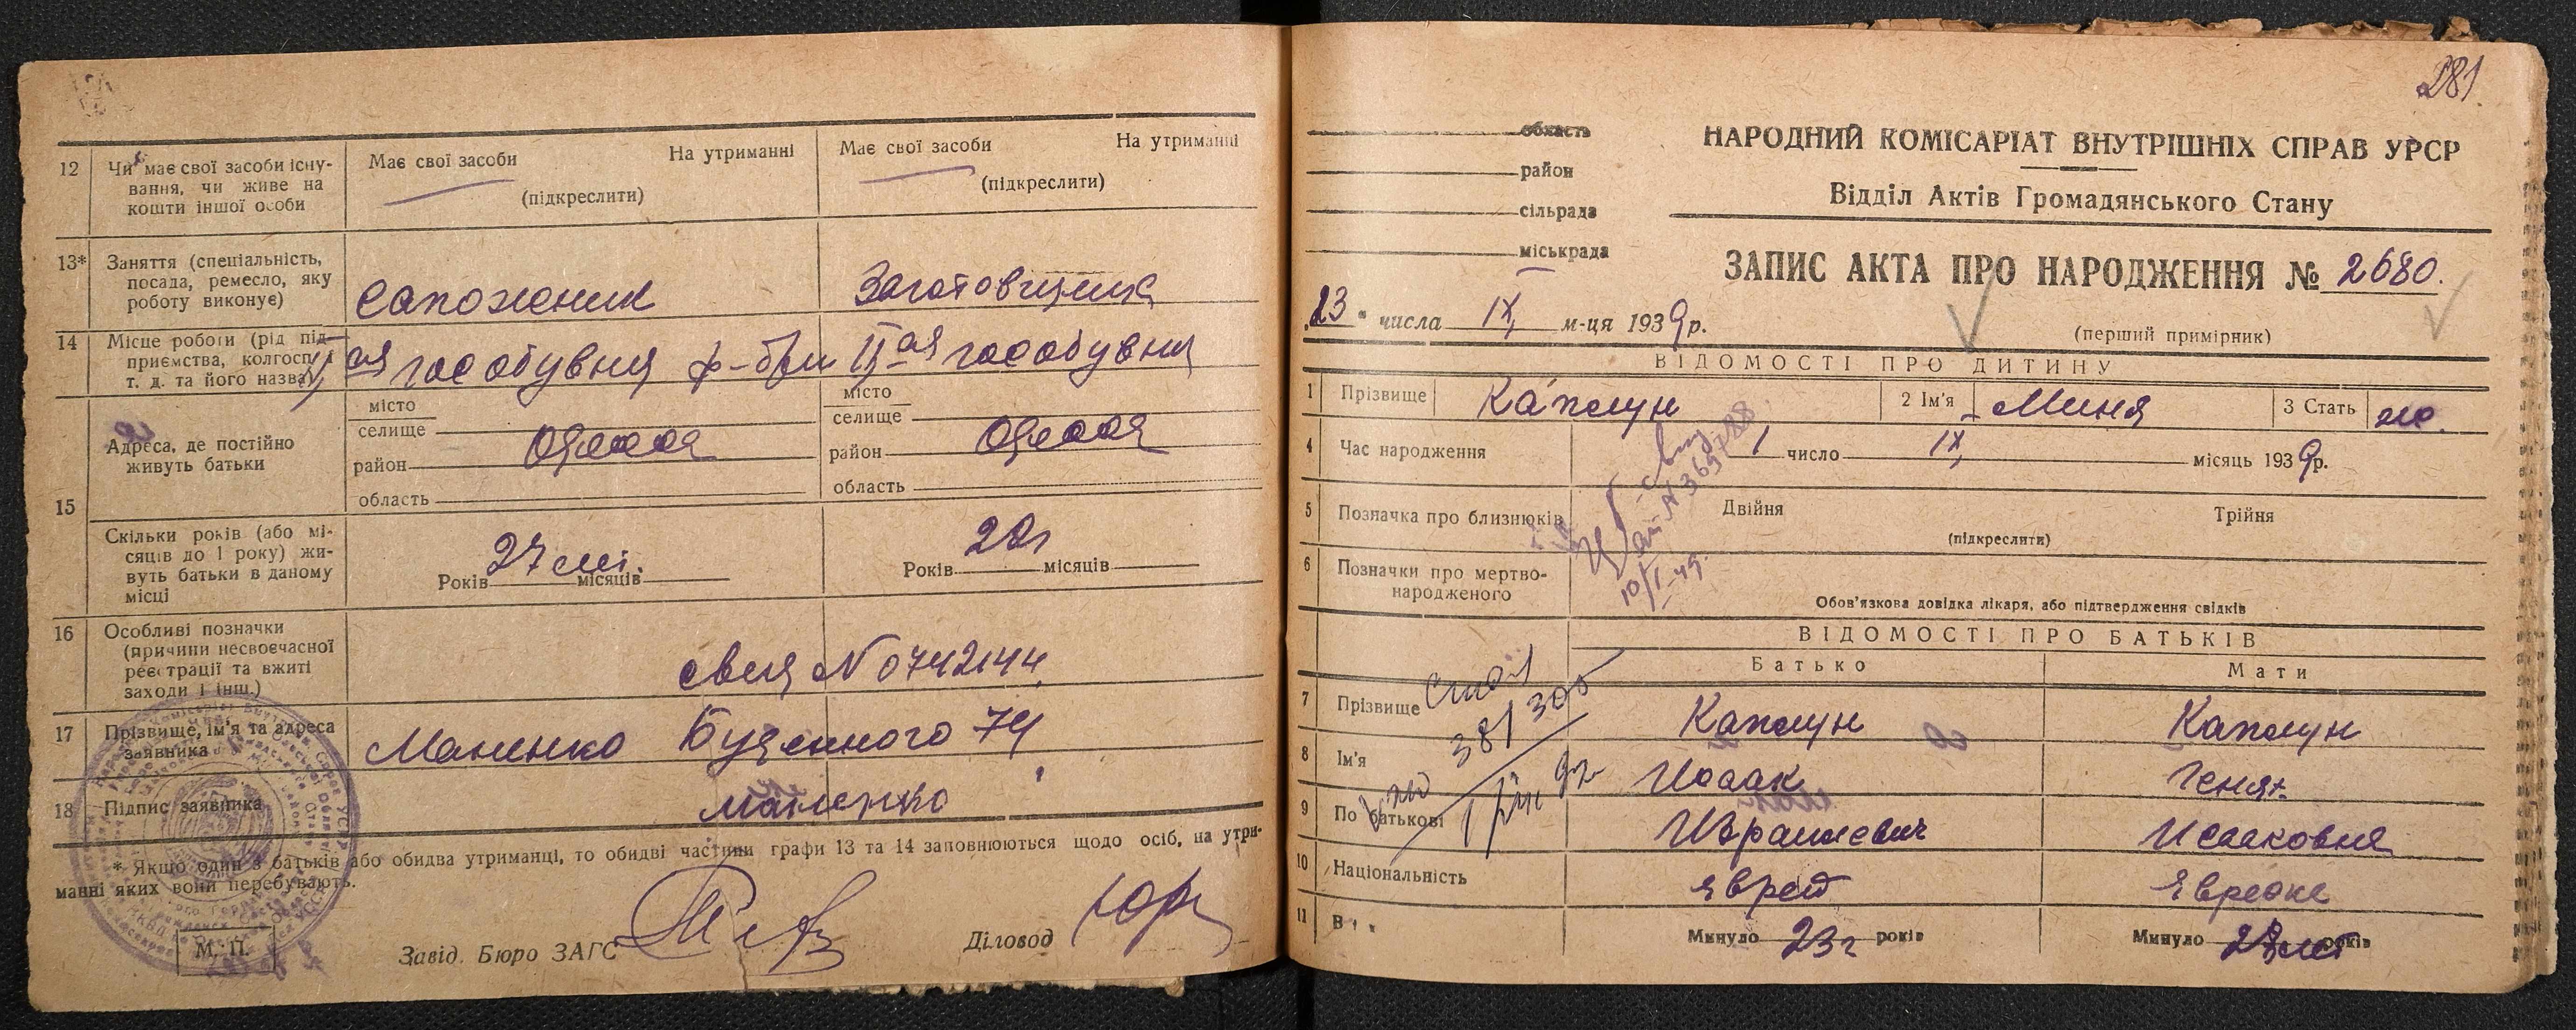 12 Чи має свої засоби існу-
вання, чи живе на
кошти іншої особи
Має свої засоби На утриманні
(підкреслити)
Має свої засоби На утриманні
(підкреслити)
13* Заняття (спеціальність,
посада, ремесло, яку
роботу виконує)
сапожник
Заготовщица
14 Місце роботи (рід під-
приємства, колгосп і
т. д. та його назва)
ая гособувна ф-бри
II ая гособувна
15
Адреса, де постійно
живуть батьки
місто
селище
район
область
Одесса
місто
селище
район
область
Одесса
Скільки років (або мі-
сяців до 1 року) жи-
вуть батьки в даному
місці
Років 27 місяців
Років місяців
16 Особливі позначки
(причини несвоєчасної
реєстрації та вжиті
заходи і інш.)
№ 0742144
17 Прізвище, ім'я та адреса
заявника
Маненко Буденного 74
18 Підпис заявника
Маненко
* Якщо один з батьків або обидва утриманці, то обидві частини графи 13 та 14 заповнюються щодо осіб, на утри-
манні яких вони перебувають.
М. П.
Завід. Бюро ЗАГС
Діловод
281
область
район
сільрада
міськрада
НАРОДНИЙ КОМІСАРІАТ ВНУТРІШНІХ СПРАВ УРСР
Відділ Актів Громадянського Стану
ЗАПИС АКТА ПРО НАРОДЖЕННЯ № 2680.
(перший примірник)
23 " числа IX м-ця 1939р.
ВІДОМОСТІ ПРО ДИТИНУ
1 Прізвище Каплун 2 Ім'я Миня 3 Стать ж.
4 Час народження 1 число IX місяць 1939р.
5 Позначка про близнюків Двійня Трійня
(підкреслити)
6 Позначки про мертво-
народженого
Обов'язкова довідка лікаря, або підтвердження свідків
10/I-49.
ВІДОМОСТІ ПРО БАТЬКІВ
Батько Мати
7 Прізвище Каплун Каплун
8 Ім'я Исаак Геня
9 По батькові Израилевич Исааковна
10 Національність еврей Еврейка
11 В
Минуло 23 г років
Минуло років